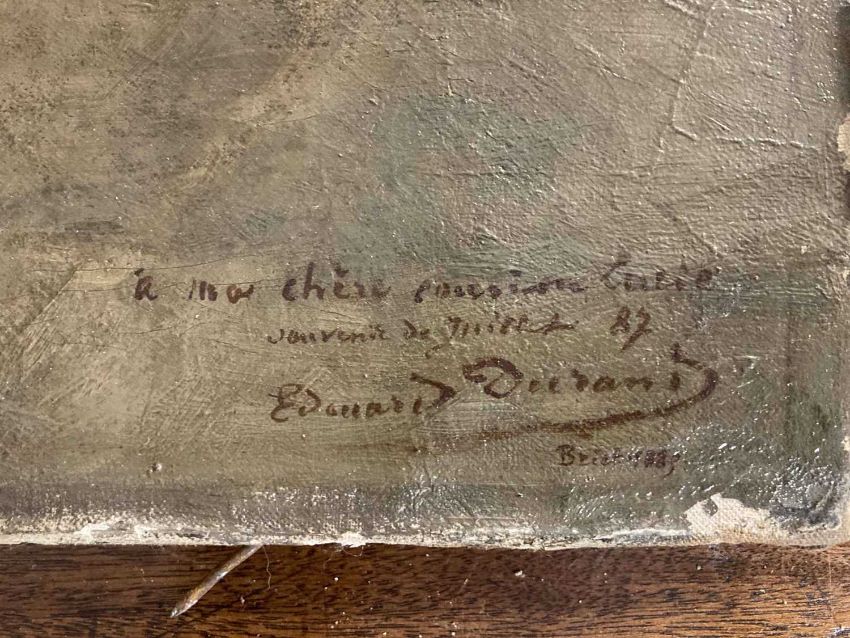 à ma chère cousine Lucie
souvenir de Juillet 87
Edouard Durand